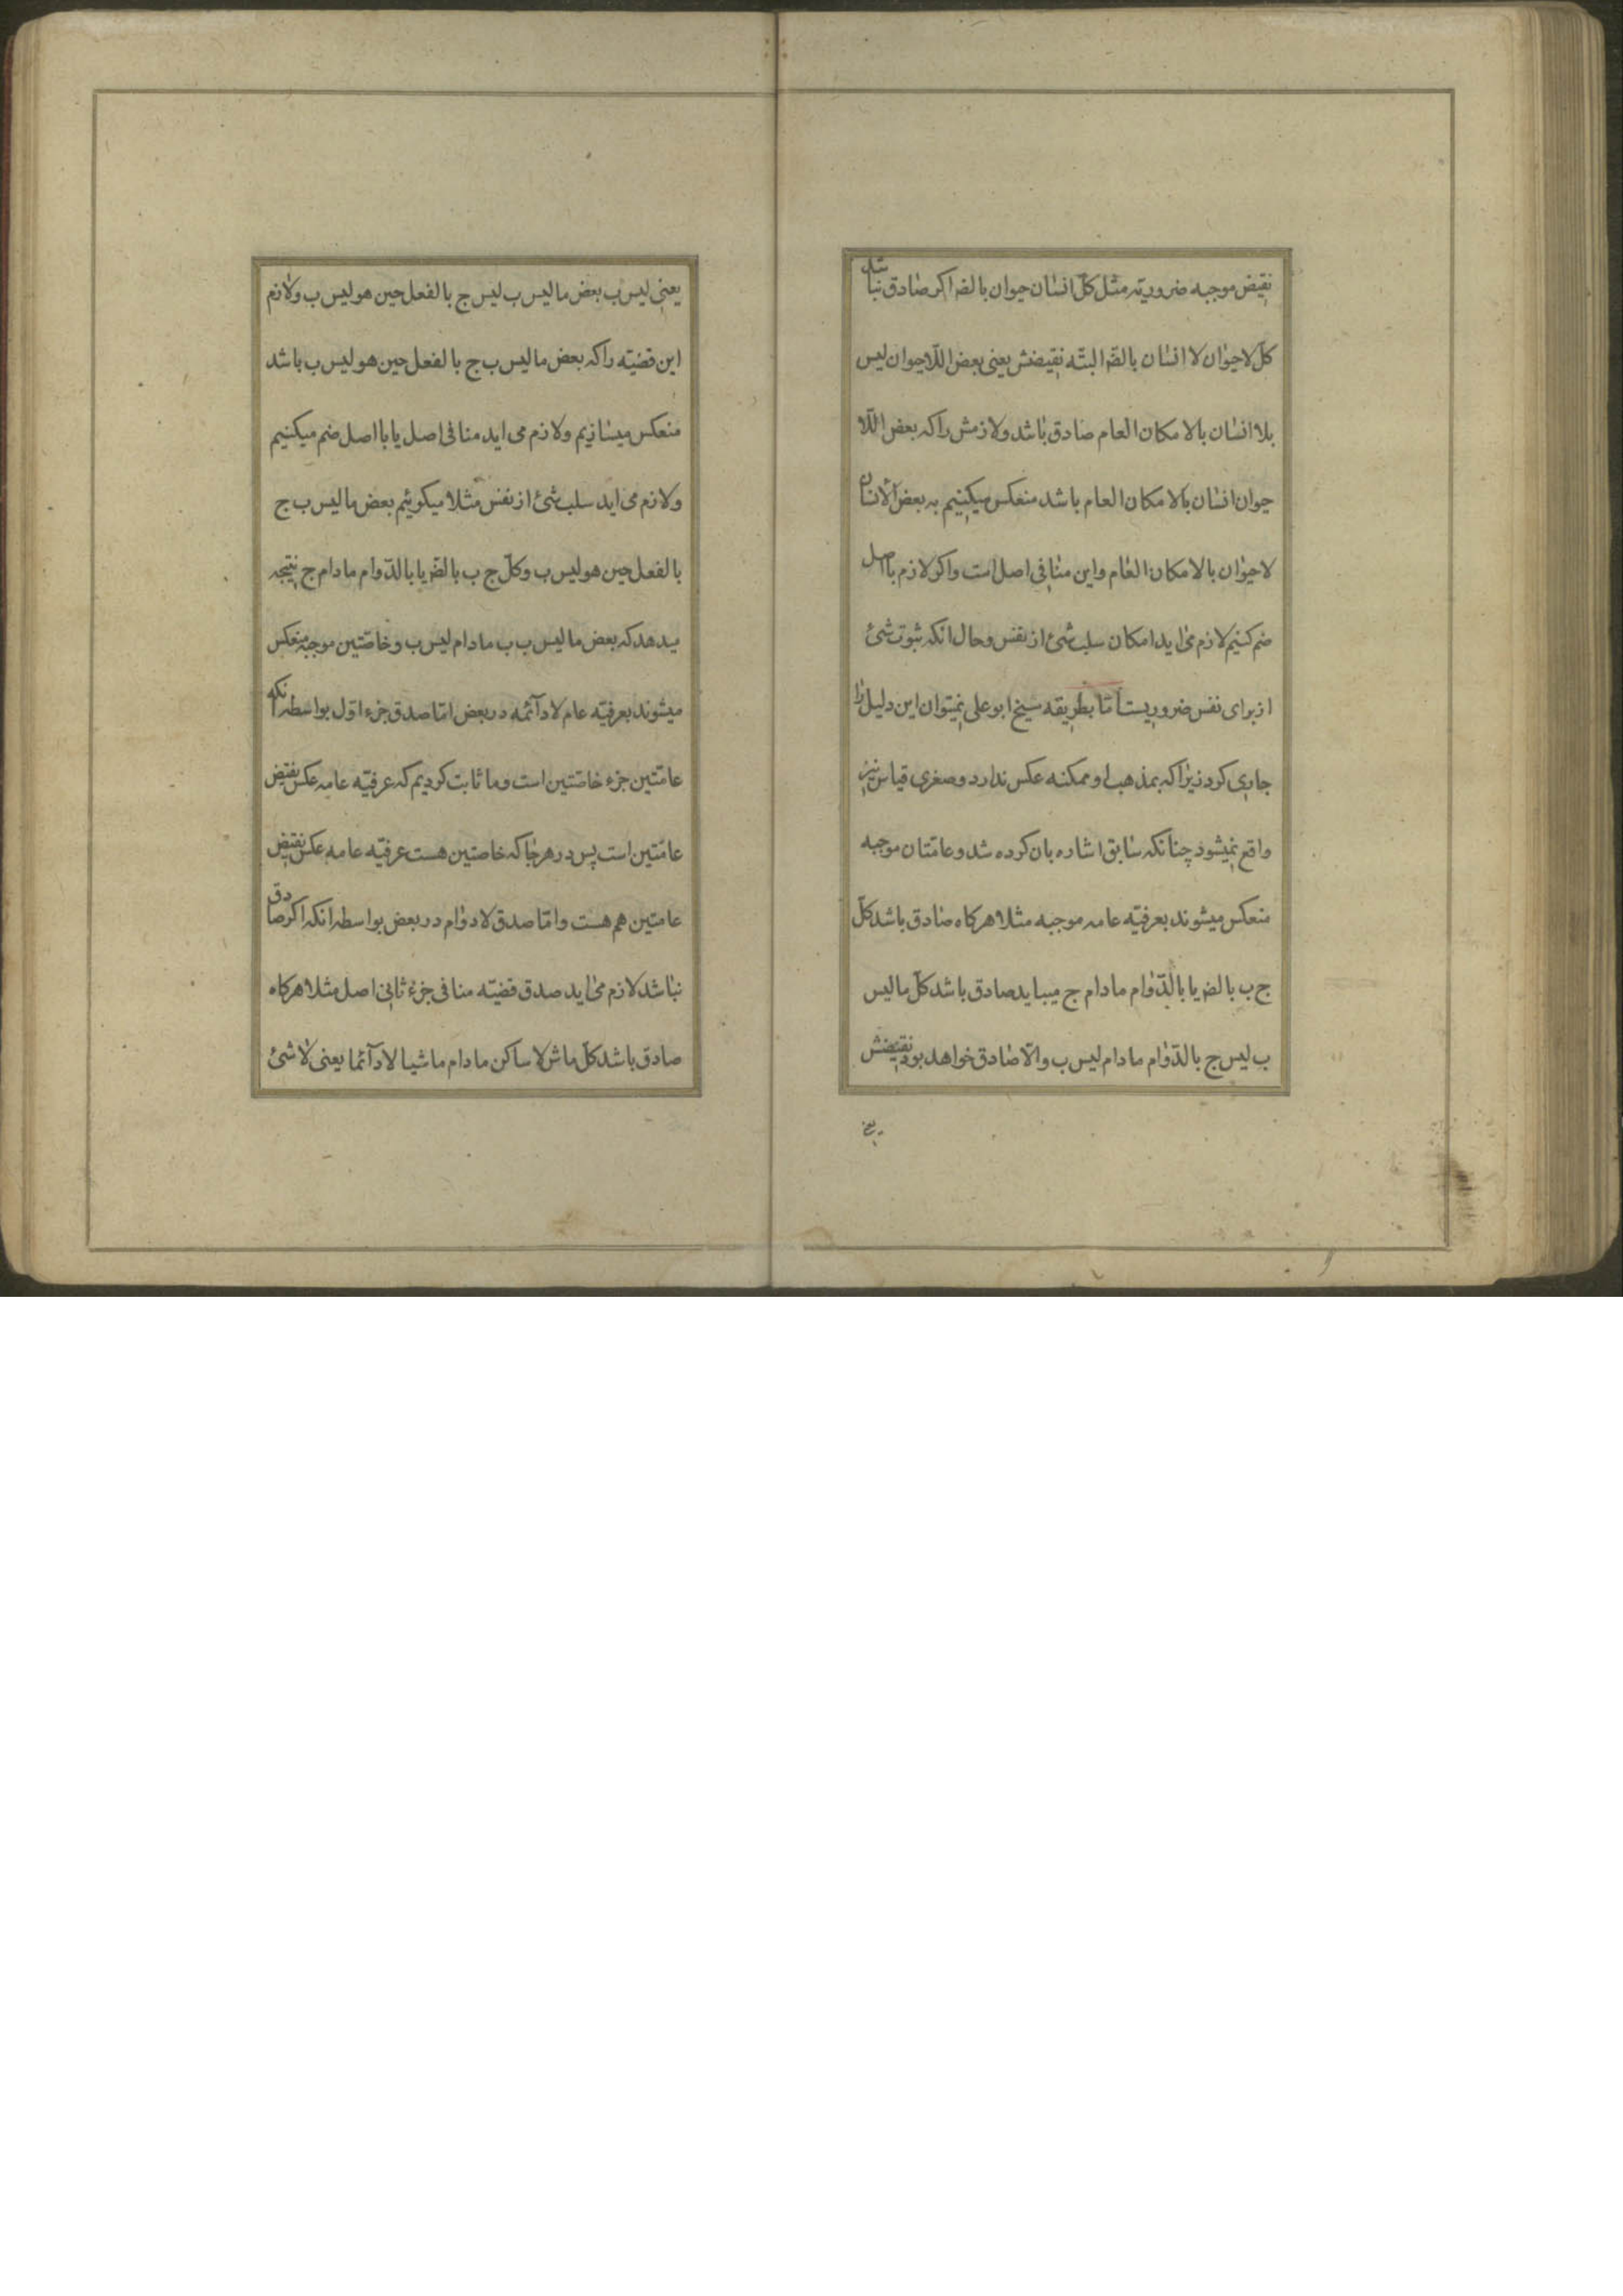 نقیض موجبه ضروریه مثل کلّ انسان حیوان بالضر اکر صادق نباشد
کل لاحیوان لا انسان بالضّر البتّه نقیضش یعنی بعض اللاحیوان لیس
بلا انسان بالامکان العام صادق باشد ولازمش را که بعض اللّا
حیوان انسان بالامکان العام باشد منعکس میکنیم به بعض الانسان
لاحیوان بالامکان العام واین منافی اصل است واکر لازم با اصل
ضم کنیم لازم می اید امکان سلب شئ از نفس وحال انکه ثبوت شئ
از برای نفس ضروریست امّا بطریقه شیخ ابوعلی نمیتوان این دلیل را
جاری کرد زیرا که بمذهب او ممکنه عکس ندارد وصغری قیاس نیز
واقع نمیشود چنانکه سابق اشاره بان کرده شد وعامّتان موجبه
منعکس میشوند بعرفیّه عامه موجبه مثلا هرکاه صادق باشد کلّ
ج ب بالضر یا بالدّوام مادام ج میباید صادق باشد کلّ مالیس
ب لیس ج بالدّوام مادام لیس ب والّا صادق خواهد بود نقیضش
یعنی
یعنی لیس ب بعض مالیس ب لیس ج بالفعل حین هو لیس ب ولازم
این قضیّه را که بعض مالیس ب ج بالفعل حین هو لیس ب باشد
منعکس میسازیم ولازم می اید منافی اصل یا با اصل ضم میکنیم
ولازم می اید سلب شئ از نفس مثلا میکوئیم بعض مالیس ب ج
بالفعل حین هو لیس ب وکلّ ج ب بالضّر یا بالدّوام مادام ج نتیجه
میدهد که بعض مالیس ب ب مادام لیس ب وخاصّتین موجبه منعکس
میشوند بعرفیّه عام لادآئمه در بعض امّا صدق جزء اوّل بواسطه انکه
عامّتین جزء خاصّتین است وما ثابت کردیم که عرفیّه عامه عکس نقیض
عامّتین است پس در هرجا که خاصتین هست عرفیّه عامه عکس نقیض
عامتین هم هست وامّا صدق لادوام در بعض بواسطه انکه اکر صادق
نباشد لازم می اید صدق قضیّه منافی جزء ثانی اصل مثلا هرکاه
صادق باشد کلّ ماش لاساکن مادام ماشیا لادآئما یعنی لاشئ